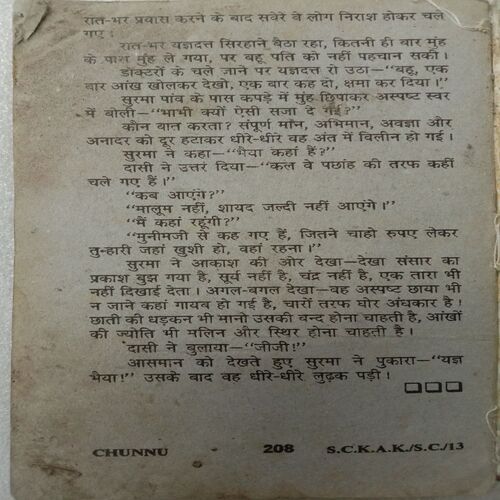 रात-भर प्रयास करने के बाद सवेरे वे लोग निराश होकर चले
गए :
रात-भर यज्ञदत्त सिरहाने बैठा रहा, कितनी ही बार मुंह
के पास मुंह ले गया, पर बहू पति को नहीं पहचान सकी।
डॉक्टरों के चले जाने पर यज्ञदत्त रो उठा—‘‘बहू, एक
बार आंख खोलकर देखो, एक बार कह दो, क्षमा कर दिया।’’
सुरमा पांव के पास कपड़े में मुंह छिपाकर अस्पष्ट स्वर
में बोली—‘‘भाभी क्यों ऐसी सजा दे गई?’’
कौन बात करता? संपूर्ण मान, अभिमान, अवज्ञा और
अनादर को दूर हटाकर धीरे-धीरे वह अंत में विलीन हो गई।
सुरमा ने कहा—‘‘भैया कहां हैं?’’
दासी ने उत्तर दिया—‘‘कल वे पछांह की तरफ कहीं
चले गए हैं।’’
‘‘कब आएंगे?’’
‘‘मालूम नहीं, शायद जल्दी नहीं आएंगे।’’
‘‘मैं कहां रहूंगी?’’
‘‘मुनीमजी से कह गए हैं, जितने चाहो रुपए लेकर
तुम्हारी जहां खुशी हो, वहां रहना।’’
सुरमा ने आकाश की ओर देखा—देखा संसार का
प्रकाश बुझ गया है, सूर्य नहीं है, चंद्र नहीं है, एक तारा भी
नहीं दिखाई देता। अगल-बगल देखा—वह अस्पष्ट छाया भी
न जाने कहां गायब हो गई है, चारों तरफ घोर अंधकार है।
छाती की धड़कन भी मानो उसकी बन्द होना चाहती है, आंखों
की ज्योति भी मलिन और स्थिर होना चाहती है।
दासी ने बुलाया—‘‘जीजी!’’
आसमान को देखते हुए सुरमा ने पुकारा—‘‘यज्ञ
भैया!’’ उसके बाद वह धीरे-धीरे लुढ़क पड़ी।
□□□
CHUNNU 208 S.C.K.A.K./S.C./13